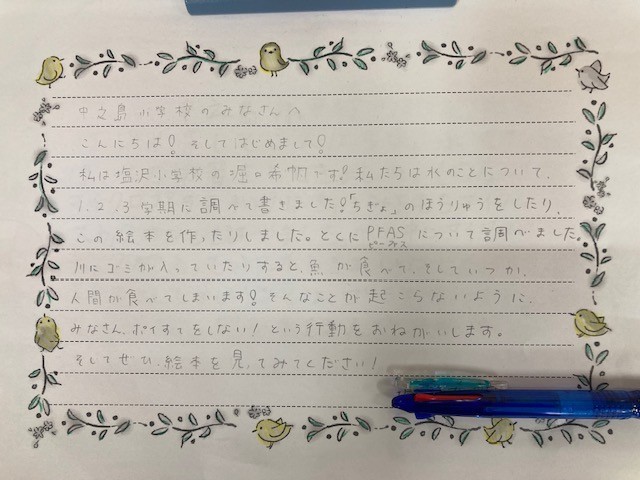 中之島小学校のみなさんへ
こんにちは!そしてはじめまして!
私は塩沢小学校の堀口希帆です!私たちは水のことについて、
1.2.3学期に調べて書きました!「ちぎょ」のほうりゅうをしたり、
この絵本を作ったりしました。とくにPFASについて調べました。
ピーファス
川にゴミが入っていたりすると、魚が食べて、そしていつか、
人間が食べてしまいます!そんなことが起こらないように、
みなさん、ポイすてをしない!という行動をおねがいします。
そしてぜひ、絵本を見てみてください!